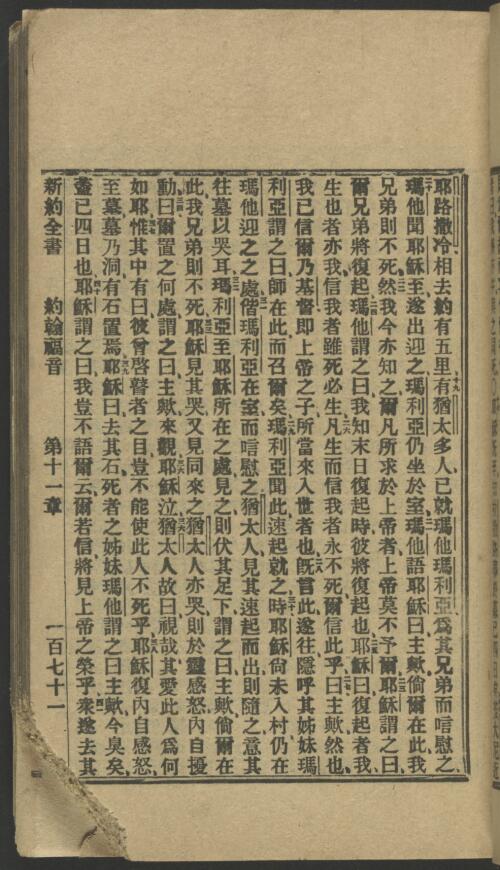 耶路撒冷相去約有五里有猶太多人已就瑪他瑪利亞爲其兄弟而唁慰之
瑪他聞耶穌至遂出迎之瑪利亞仍坐於室瑪他語耶穌曰主歟倘爾在此我
兄弟則不死然我今亦知之爾凡所求於上帝者上帝莫不予爾耶穌謂之曰
爾兄弟將復起瑪他謂之曰我知末日復起時彼將復起也耶穌曰復起者我
生也者亦我信我者雖死必生凡生而信我者永不死爾信此乎曰主歟然也
我已信爾乃基督即上帝之子所當來入世者也旣言此遂往隱呼其姊妹瑪
利亞謂之曰師在此而召爾矣瑪利亞聞此速起就之時耶穌尙未入村仍在
瑪他迎之之處偕瑪利亞在室而唁慰之猶太人見其速起而出則隨之意其
往墓以哭耳瑪利亞至耶穌所在之處見之則伏其足下謂之曰主歟倘爾在
此我兄弟則不死耶穌見其哭又見同來之猶太人亦哭則於靈感怒內自擾
動曰爾置之何處謂之曰主歟來觀耶穌泣猶太人故曰視哉其愛此人爲何
如耶惟其中有曰彼曾啓瞽者之目豈不能使此人不死乎耶穌復內自感怒
至墓墓乃洞有石置焉耶穌曰去其石死者之姊妹瑪他謂之曰主歟今臭矣
蓋已四日也耶穌謂之曰我豈不語爾云爾若信將見上帝之榮乎衆遂去其
新約全書 約翰福音 第十一章 一百七十一